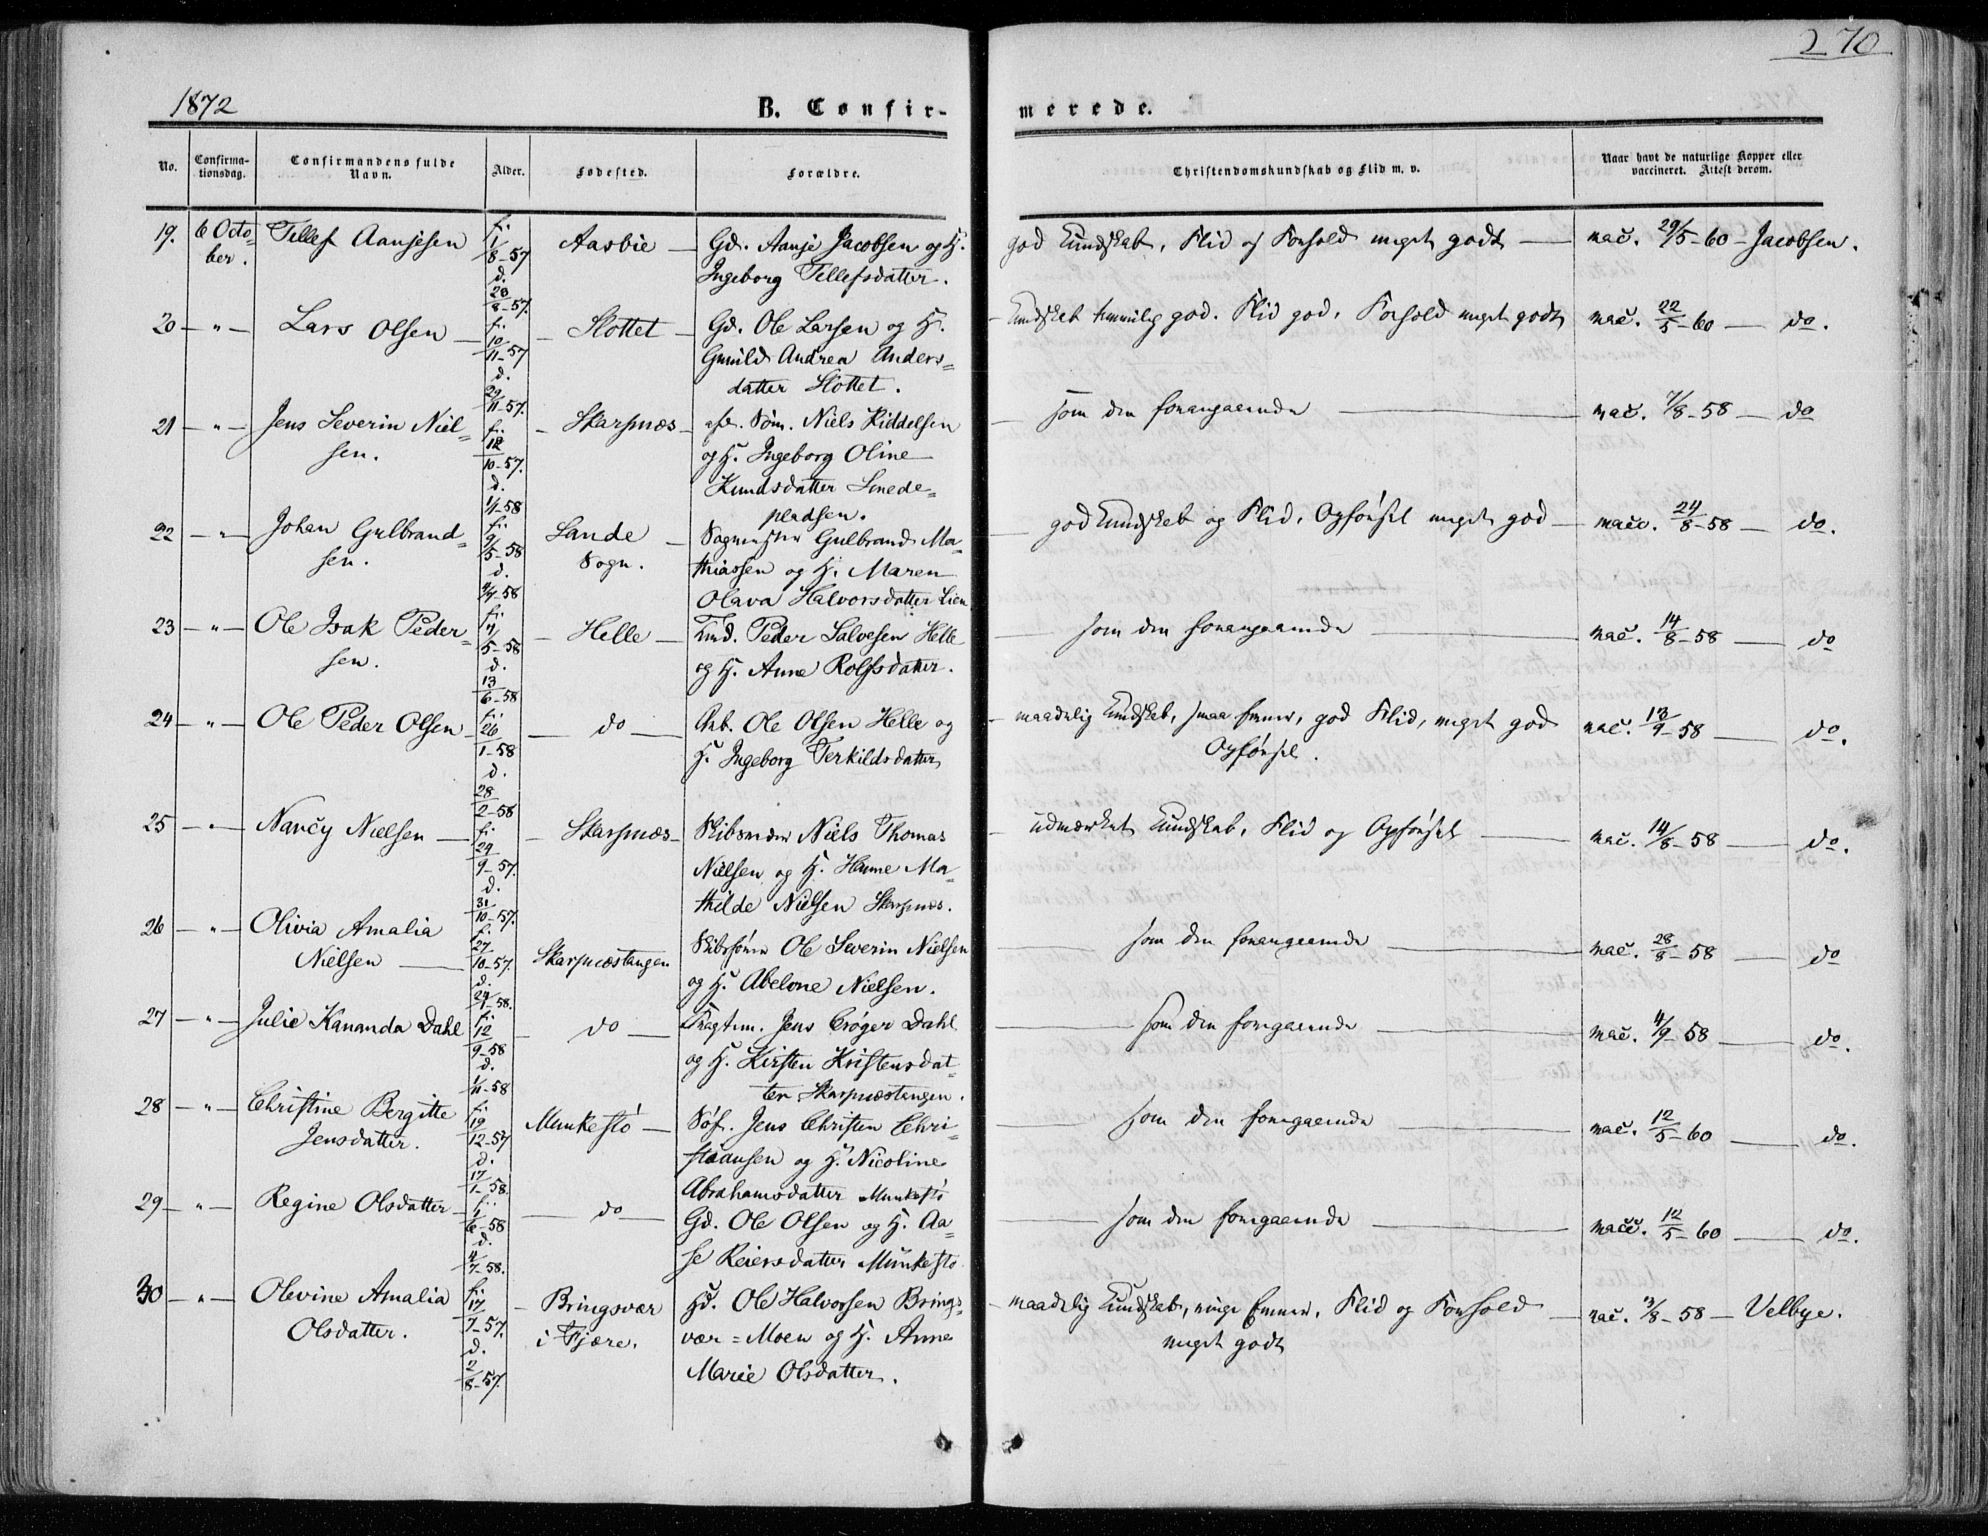 270
1872
B. Confir-
merede.
No.
Confirma-
tionsdag.
Confirmandens fulde
Navn.
Alder.
Fødested.
Forældre.
Christendomskundskab og Flid m. v.
Naar havt de naturlige Kopper eller
vaccineret. Attest derom.
19. 6 Octo- Tellef Aanjesen f: 1/8-57 Aasbie — Gd. Aanje Jacobsen og H. god Kundskab, Flid og Forhold meget godt — vac. 29/5-60 - Jacobsen.
ber. d. 20/8-57. Ingeborg Tellefsdatter.
20 — " — Lars Olsen — f: 10/11-57 - Slottet — Gd. Ole Larsen og H. - Kundskab temmelig god. Flid god, Forhold meget godt vac. 22/5-60 — do.
d. 29/11-57. Gunild Andrea Anders-
datter Slottet.
21 — " — Jens Severin Niel- f: 12/10-57. - Skarpnæs - afd. Søm. Niels Kiddelsen — som den foregaaende — vac. 7/8-58 — do
sen. d. 1/1-58 og H. Ingeborg Oline
Knudsdatter Smede-
pladsen.
22 — " — Johan Gulbrand- f: 9/5-58 Sande — Sagmester Gulbrand Ma- — god Kundskab og Flid, Opførsel meget god — vacc. 24/8-58 — do.
sen. d. Sogn. thiassen og H. Maren
Olava Halvorsdatter Lien
23 — " — Ole Isak Peder- f: - Helle — Peder Salvesen Helle — som den foregaaende — vac. 14/8-58 — do
sen. d. 13/6-58 og H. Anne Rolfsdatter.
24 — " — Ole Peder Olsen — f: 26/1-58 — do — Arb. Ole Olsen Helle og - maadelig Kundskab, smaa Evner, god Flid, meget god vac. 13/9-58 — do.
d. 28/2-58 H. Ingeborg Terkildsdatter Opførsel.
25 — " — Nancy Nielsen — f: 29/9-57. - Skarpnæs - Niels Thomas - udmærket Kundskab, Flid og Opførsel — vac. 14/8-58 — do.
d. 31/10-57. Nielsen og H. Hanne Ma-
thilde Nielsen Skarpnæs.
26 — " — Olivia Amalia f: 27/10-57. Skarpnæstangen Skibsfører Ole Severin Nielsen — som den foregaaende — vac. 28/8-58 — do
Nielsen — d. 24/1-58. og H. Abelone Nielsen.
27 — " — Julie Kananda Dahl f: 12/9-58 — do — Fragtm. Jens Crøger Dahl — som den foregaaende — vac. 4/9-58 — do.
d. 1/11-58 og H. Kirsten Kristensdat-
ter Skarpnæstangen.
28 — " — Christine Bergitte f: 19/12-57 Munkestø — Søf. Jens Christen Chri- — som den foregaaende — vac. 12/5-60 — do.
Jensdatter. d. 17/1-58. stiansen og H. Nicoline
Abrahamsdatter Munkestø
29 — " — Regine Olsdatter — f: — do — Gd. Ole Olsen og H. Aa- — som den foregaaende — vacc. 12/5-60 — do.
d. 4/7-58. se Reiersdatter Munkestø
30 — " — Olevine Amalia f: 17/7-57. - Bringsvær Gd. Ole Halvorsen Brings- - maadelig Kundskab, ringe Evner, Flid og Forhold — vac. 3/8-58 — Velbye.
Olsdatter. d. 2/8-57. i Fjære. vær = Moen og H. Anne meget godt
Marie Olsdatter.